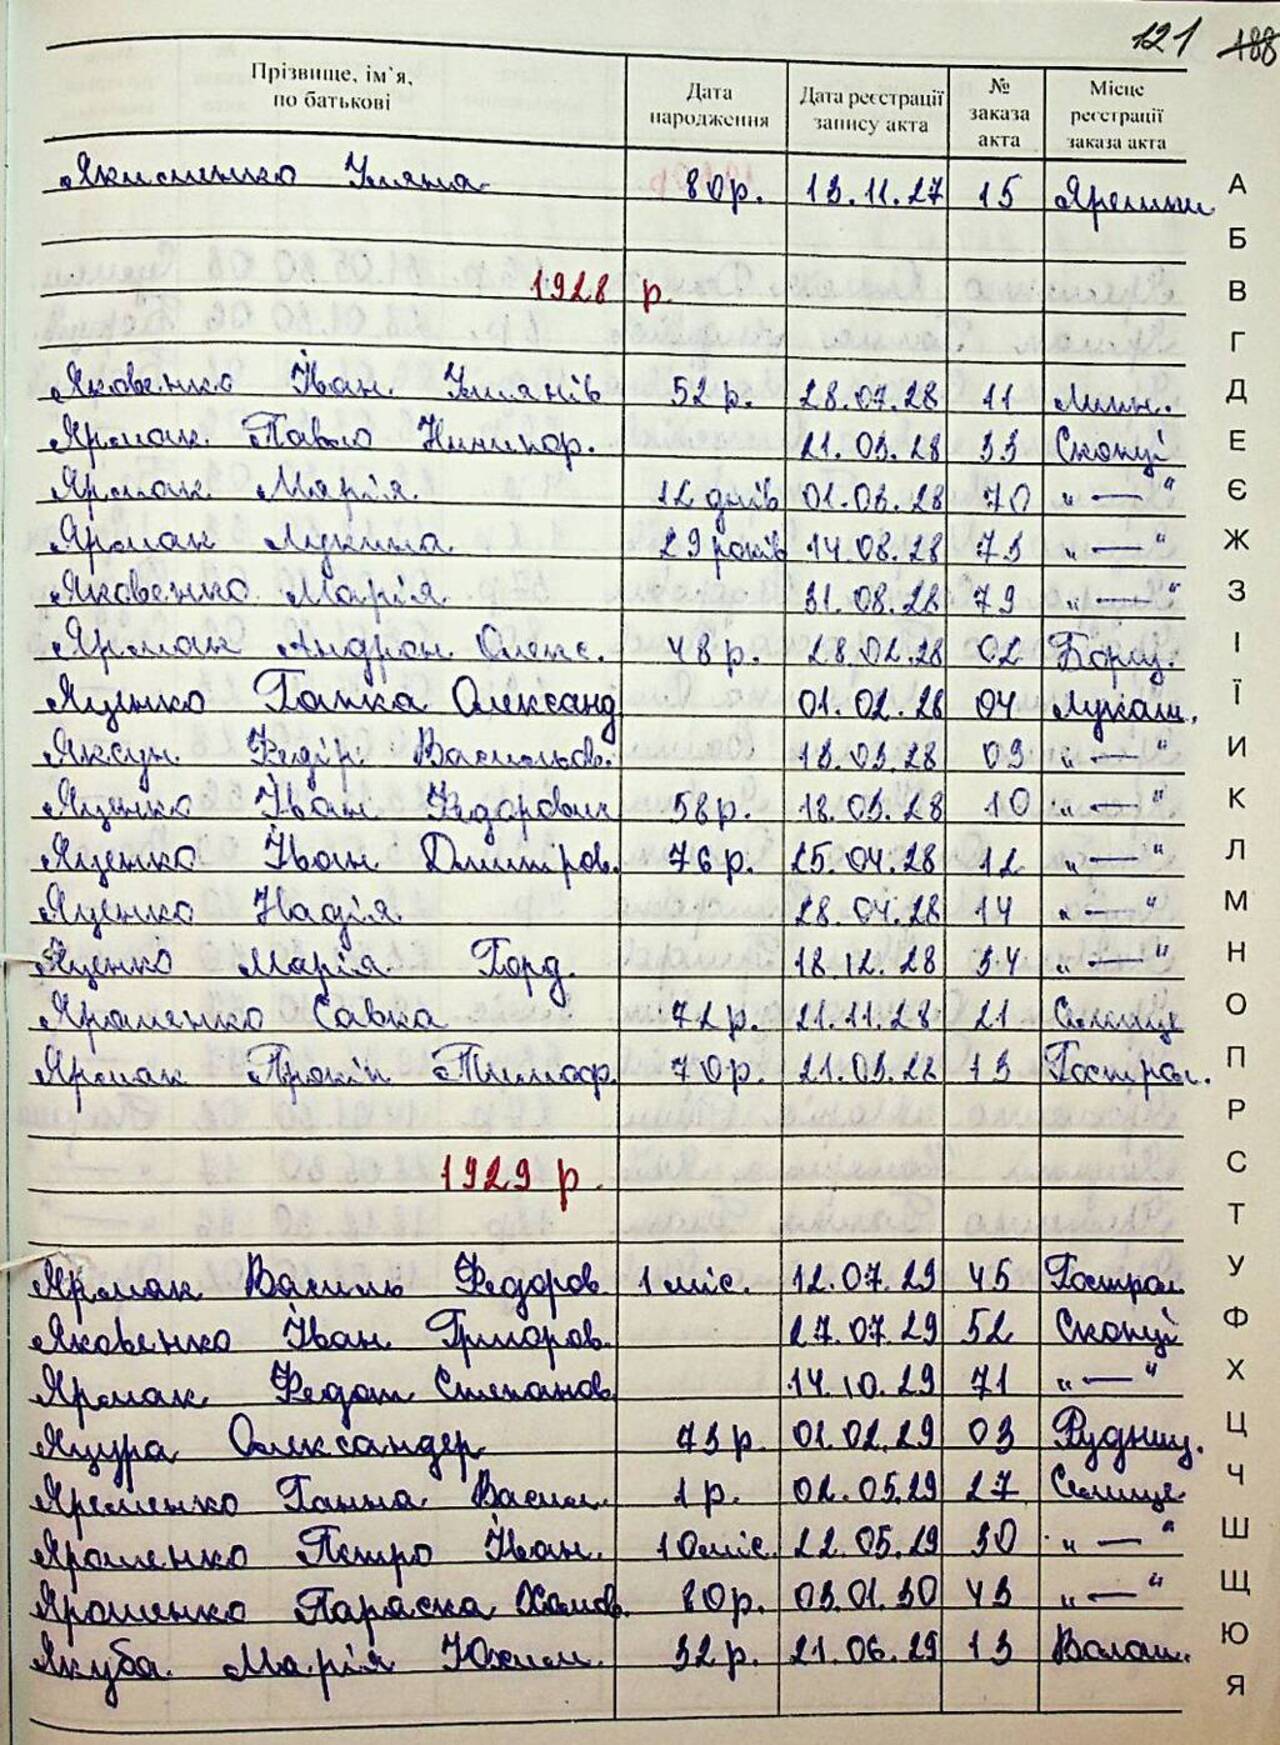 121 188
Прізвище, ім'я, по батькові Дата народження Дата реєстрації запису акта № заказа акта Місце реєстрації заказа акта
Якименко Уляна 80р. 13.11.27 15
1928 р.
Яковенко Іван Улянів 52 р. 28.07.28 11 Липн.
Ярмак Павло Ничипор. 21.03.28 33 Скопці
Ярмак Марія 12 днів 01.08.28 70 „ — "
Ярмак Лукина 29 років 14.08.28 73 „ — "
Яковенко Марія 31.08.28 79 „ — "
Ярмак Андрон Олекс. 48 р. 28.02.28 02 Борщ.
Яценко Гапка Олександ 01.02.28 04 Лукаш.
Яксун Федір Васильов. 13.03.28 09 „ — "
Яценко Іван Федорович 58р. 18.03.28 10 „ — "
Яценко Іван Дмитров. 76 р. 25.04.28 12 „ — "
Яценко Надія 28.04.28 14 „ — "
Яценко Марія Горд. 18.12.28 34 „ — "
Ярошенко Савка 72р. 21.11.28 21 Селище
Ярмак Прокіп Тимоф. 70р. 21.03.28 13 Гострол.
1929 р.
Ярмак Василь Федоров. 1 міс. 12.07.29 45 Гострол
Яковенко Іван Григоров. 27.07.29 52 Скопці
Ярмак Федот Степанов 14.10.29 71 „ — "
Яцура Олександер 73 р. 01.02.29 03 Рудниц.
Яременко Ганна Васил. 1 р. 02.05.29 27 Селище
Ярошенко Петро Іван. 10міс. 22.05.29 30 „ — "
Ярошенко Параска Хомов. 80р. 03.01.30 43 „ — "
Якуба Марія Юхим. 32р. 21.06.29 13 Волош.
А
Б
В
Г
Д
Е
Є
Ж
З
І
Ї
И
К
Л
М
Н
О
П
Р
С
Т
У
Ф
Х
Ц
Ч
Ш
Щ
Ю
Я